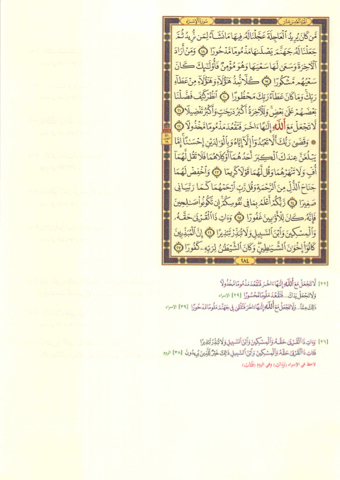 مَّن كَانَ يُرِيدُ ٱلْعَاجِلَةَ عَجَّلْنَا لَهُۥ فِيهَا مَا نَشَآءُ لِمَن نُّرِيدُ ثُمَّ
جَعَلْنَا لَهُۥ جَهَنَّمَ يَصْلَىٰهَا مَذْمُومًا مَّدْحُورًا ١٨ وَمَنْ أَرَادَ
ٱلْـَٔاخِرَةَ وَسَعَىٰ لَهَا سَعْيَهَا وَهُوَ مُؤْمِنٌ فَأُو۟لَـٰٓئِكَ كَانَ
سَعْيُهُم مَّشْكُورًا ١٩ كُلًّا نُّمِدُّ هَـٰٓؤُلَآءِ وَهَـٰٓؤُلَآءِ مِنْ عَطَآءِ
رَبِّكَ وَمَا كَانَ عَطَآءُ رَبِّكَ مَحْظُورًا ٢٠ ٱنظُرْ كَيْفَ فَضَّلْنَا
بَعْضَهُمْ عَلَىٰ بَعْضٍ وَلَلْـَٔاخِرَةُ أَكْبَرُ دَرَجَـٰتٍ وَأَكْبَرُ تَفْضِيلًا ٢١
لَّا تَجْعَلْ مَعَ ٱللَّهِ إِلَـٰهًا ءَاخَرَ فَتَقْعُدَ مَذْمُومًا مَّخْذُولًا ٢٢
۞ وَقَضَىٰ رَبُّكَ أَلَّا تَعْبُدُوٓا۟ إِلَّآ إِيَّاهُ وَبِٱلْوَٰلِدَيْنِ إِحْسَـٰنًا إِمَّا
يَبْلُغَنَّ عِندَكَ ٱلْكِبَرَ أَحَدُهُمَآ أَوْ كِلَاهُمَا فَلَا تَقُل لَّهُمَآ
أُفٍّ وَلَا تَنْهَرْهُمَا وَقُل لَّهُمَا قَوْلًا كَرِيمًا ٢٣ وَٱخْفِضْ لَهُمَا
جَنَاحَ ٱلذُّلِّ مِنَ ٱلرَّحْمَةِ وَقُل رَّبِّ ٱرْحَمْهُمَا كَمَا رَبَّيَانِى
صَغِيرًا ٢٤ رَّبُّكُمْ أَعْلَمُ بِمَا فِى نُفُوسِكُمْ إِن تَكُونُوا۟ صَـٰلِحِينَ
فَإِنَّهُۥ كَانَ لِلْأَوَّٰبِينَ غَفُورًا ٢٥ وَءَاتِ ذَا ٱلْقُرْبَىٰ حَقَّهُۥ
وَٱلْمِسْكِينَ وَٱبْنَ ٱلسَّبِيلِ وَلَا تُبَذِّرْ تَبْذِيرًا ٢٦ إِنَّ ٱلْمُبَذِّرِينَ
كَانُوٓا۟ إِخْوَٰنَ ٱلشَّيَـٰطِينِ وَكَانَ ٱلشَّيْطَـٰنُ لِرَبِّهِۦ كَفُورًا ٢٧
٢٨٤
[٢٢] لَّا تَجْعَلْ مَعَ ٱللَّهِ إِلَـٰهًا ءَاخَرَ فَتَقْعُدَ مَذْمُومًا مَّخْذُولًا
وَلَا تَجْعَلْ يَدَكَ... فَتَقْعُدَ مَلُومًا مَّحْسُورًا [٢٩] الإسراء
ذَٰلِكَ مِمَّآ... وَلَا تَجْعَلْ مَعَ ٱللَّهِ إِلَـٰهًا ءَاخَرَ فَتُلْقَىٰ فِى جَهَنَّمَ مَلُومًا مَّدْحُورًا [٣٩] الإسراء
[٢٦] وَءَاتِ ذَا ٱلْقُرْبَىٰ حَقَّهُۥ وَٱلْمِسْكِينَ وَٱبْنَ ٱلسَّبِيلِ وَلَا تُبَذِّرْ تَبْذِيرًا
فَـَٔاتِ ذَا ٱلْقُرْبَىٰ حَقَّهُۥ وَٱلْمِسْكِينَ وَٱبْنَ ٱلسَّبِيلِ ذَٰلِكَ خَيْرٌ لِّلَّذِينَ يُرِيدُونَ [٣٨] الروم